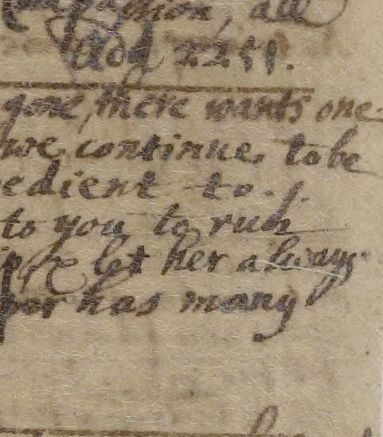 all
Add 2251.
gone, there wants one
we continue, to be
edient to.
to you to rub
let her always
has many